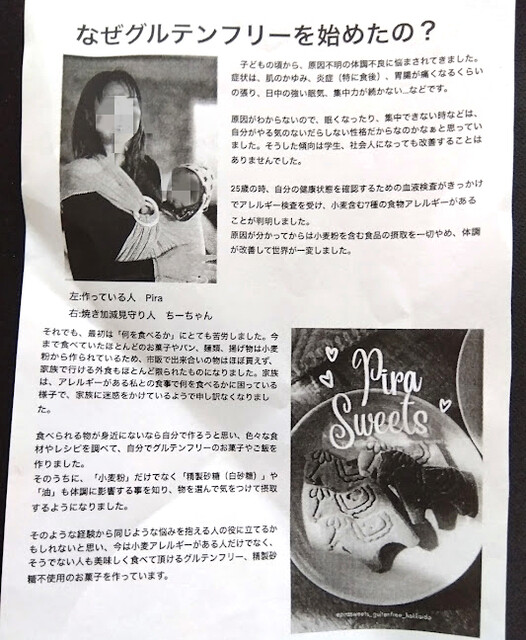 なぜグルテンフリーを始めたの？
子どもの頃から、原因不明の体調不良に悩まされてきました。
症状は、肌のかゆみ、炎症（特に食後）、胃腸が痛くなるくらい
の張り、日中の強い眠気、集中力が続かない...などです。
原因がわからないので、眠くなったり、集中できない時などは、
自分がやる気のないだらしない性格だからなのかなぁと思ってい
ました。そうした傾向は学生、社会人になっても改善することは
ありませんでした。
25歳の時、自分の健康状態を確認するための血液検査がきっかけ
でアレルギー検査を受け、小麦含む7種の食物アレルギーがある
ことが判明しました。
原因が分かってからは小麦粉を含む食品の摂取を一切やめ、体調
が改善して世界が一変しました。
左:作っている人　Pira
右:焼き加減見守り人　ちーちゃん
それでも、最初は「何を食べるか」にとても苦労しました。今
まで食べていたほとんどのお菓子やパン、麺類、揚げ物は小麦
粉から作られているため、市販で出来合いの物はほぼ買えず、
家族で行ける外食もほとんど限られたものになりました。家族
は、アレルギーがある私との食事で何を食べるかに困っている
様子で、家族に迷惑をかけているようで申し訳なくなりまし
た。
食べられる物が身近にないなら自分で作ろうと思い、色々な食
材やレシピを調べて、自分でグルテンフリーのお菓子やご飯を
作りました。
そのうちに、「小麦粉」だけでなく「精製砂糖（白砂糖）」や
「油」も体調に影響する事を知り、物を選んで気をつけて摂取
するようになりました。
そのような経験から同じような悩みを抱える人の役に立てるか
もしれないと思い、今は小麦アレルギーがある人だけでなく、
そうでない人も美味しく食べて頂けるグルテンフリー、精製砂
糖不使用のお菓子を作っています。
Pira
Sweets
@pirasweets_gultenfree_hokkaido